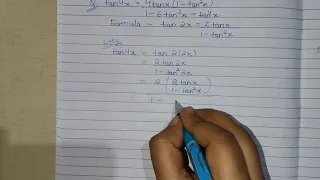 Q. tan4x = 4tanx(1-tan²x)
1-6tan²x+tan⁴x
Formula - tan2x = 2tanx
1-tan²x
LHS
tan4x = tan2(2x)
= 2tan2x
1-tan²2x
= 2 (2tanx
1-tan²x)
1-